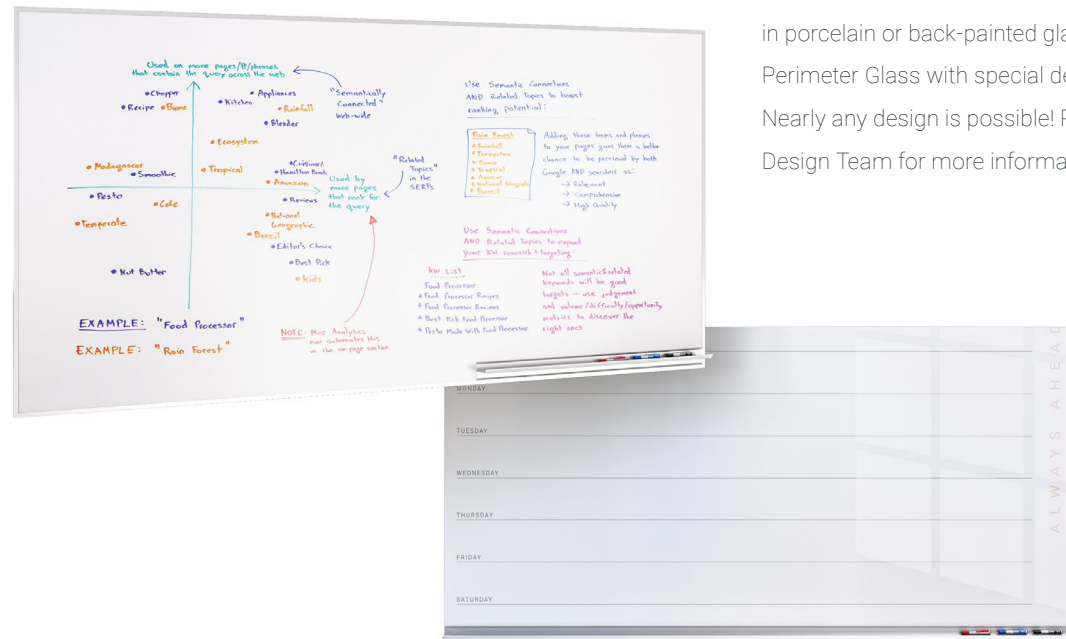 in porcelain or back-painted gla
Perimeter Glass with special de
Nearly any design is possible! P
Design Team for more informa
Used on more pages/P/phrases
that contain the query across the web
"Semantically
Connected"
Web-wide
• Chopper
• Recipe • Biome
• Appliances
• Kitchen
• Rainfall
• Blender
• Ecosystem
• Madagascar
• Smoothie
• Tropical
• Cuisinart
• Hamilton Beach
• Amazon
"Related
Topics"
in the
SERPs
Used by
more pages
that rank for
the query
• Pesto
• Coke
• Temperate
• Reviews
• National
Geographic
• Brazil
• Editor's Choice
• Best Pick
• Kids
• Nut Butter
EXAMPLE: "Food Processor"
EXAMPLE: "Rain Forest"
NOTE: Moz Analytics
now automates this
in the on-page section
Use Semantic Connections
AND Related Topics to boost
ranking potential:
Rain Forest
+ Rainfall
+ Ecosystem
+ Biome
+ Tropical
+ Amazon
+ National Geographic
+ Brazil
Adding these terms and phrases
to your pages gives them a better
chance to be perceived by both
Google AND searchers as:
→ Relevant
→ Comprehensive
→ High Quality
Use Semantic Connections
AND Related Topics to expand
your KW research + targeting:
KW List
Food Processor
+ Food Processor Recipes
+ Food Processor Reviews
+ Best Pick Food Processor
+ Pesto Made With Food Processor
Not all semantic & related
keywords will be good
targets — use judgement
and volume/difficulty/opportunity
metrics to discover the
right ones
MONDAY
TUESDAY
WEDNESDAY
THURSDAY
FRIDAY
SATURDAY
ALWAYS AHEAD